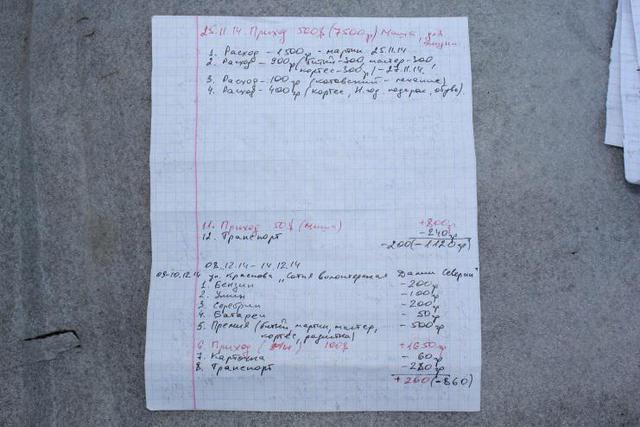 25.11.14. Приход 500$ (7500р) Миша, для
1. Расход - 1500р - мартин 25.11.14
2. Расход - 900р (битый-300, мастер-300,
кортес-300р) - 27.11.14.
3. Расход - 100р (котовский - лечение)
4. Расход - 400р (кортес, Н.год подарок, обувь).
11. Приход 50$ (Миша) +800р
12. Транспорт -240р
-200 (-1120р)
08.12.14 - 14.12.14
09-10.12.14 ул. Краснова „Сотня волонтерская Данаи Северин"
1. Бензин -200р
2. Улии -100р
3. Серебрян -200р
4. Батареи -50р
5. Премия (битый, мартин, мастер, -500р
кортес, радистка)
6. Приход 100$ +1650р
7. Карточка -60р
8. Транспорт -280р
+260 (-860)